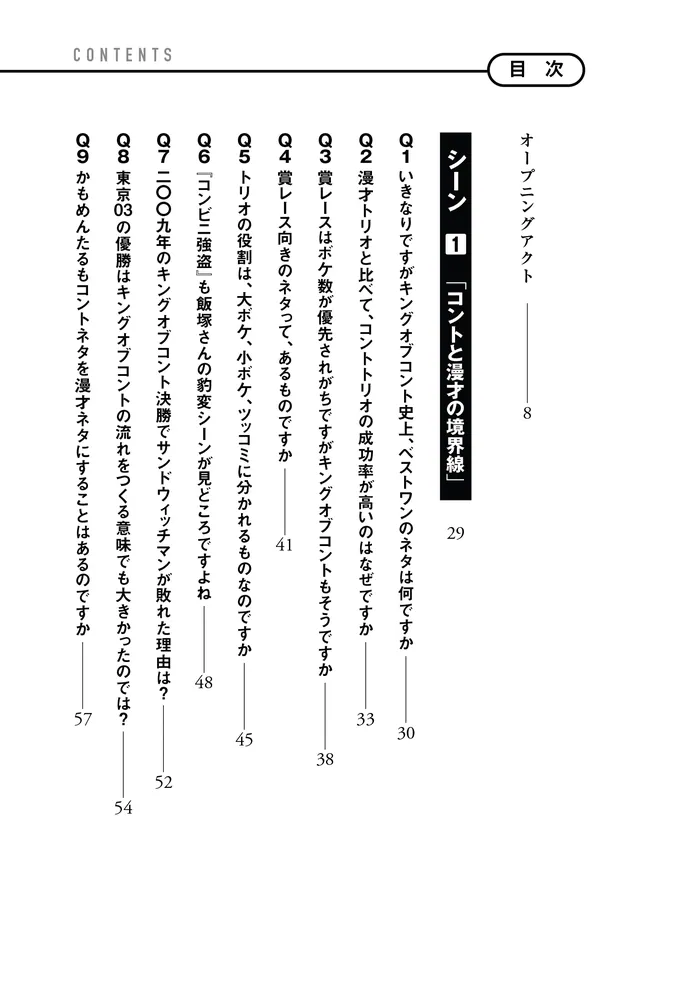 CONTENTS
目次
オープニングアクト 8
シーン 1 「コントと漫才の境界線」 29
Q1 いきなりですがキングオブコント史上、ベストワンのネタは何ですか 30
Q2 漫才トリオと比べて、コントトリオの成功率が高いのはなぜですか 33
Q3 賞レースはボケ数が優先されがちですがキングオブコントもそうですか 38
Q4 賞レース向きのネタって、あるものですか 41
Q5 トリオの役割は、大ボケ、小ボケ、ツッコミに分かれるものなのですか 45
Q6 『コンビニ強盗』も飯塚さんの豹変シーンが見どころですよね 48
Q7 二〇〇九年のキングオブコント決勝でサンドウィッチマンが敗れた理由は? 52
Q8 東京03の優勝はキングオブコントの流れをつくる意味でも大きかったのでは? 54
Q9 かもめんたるもコントネタを漫才ネタにすることはあるのですか 57